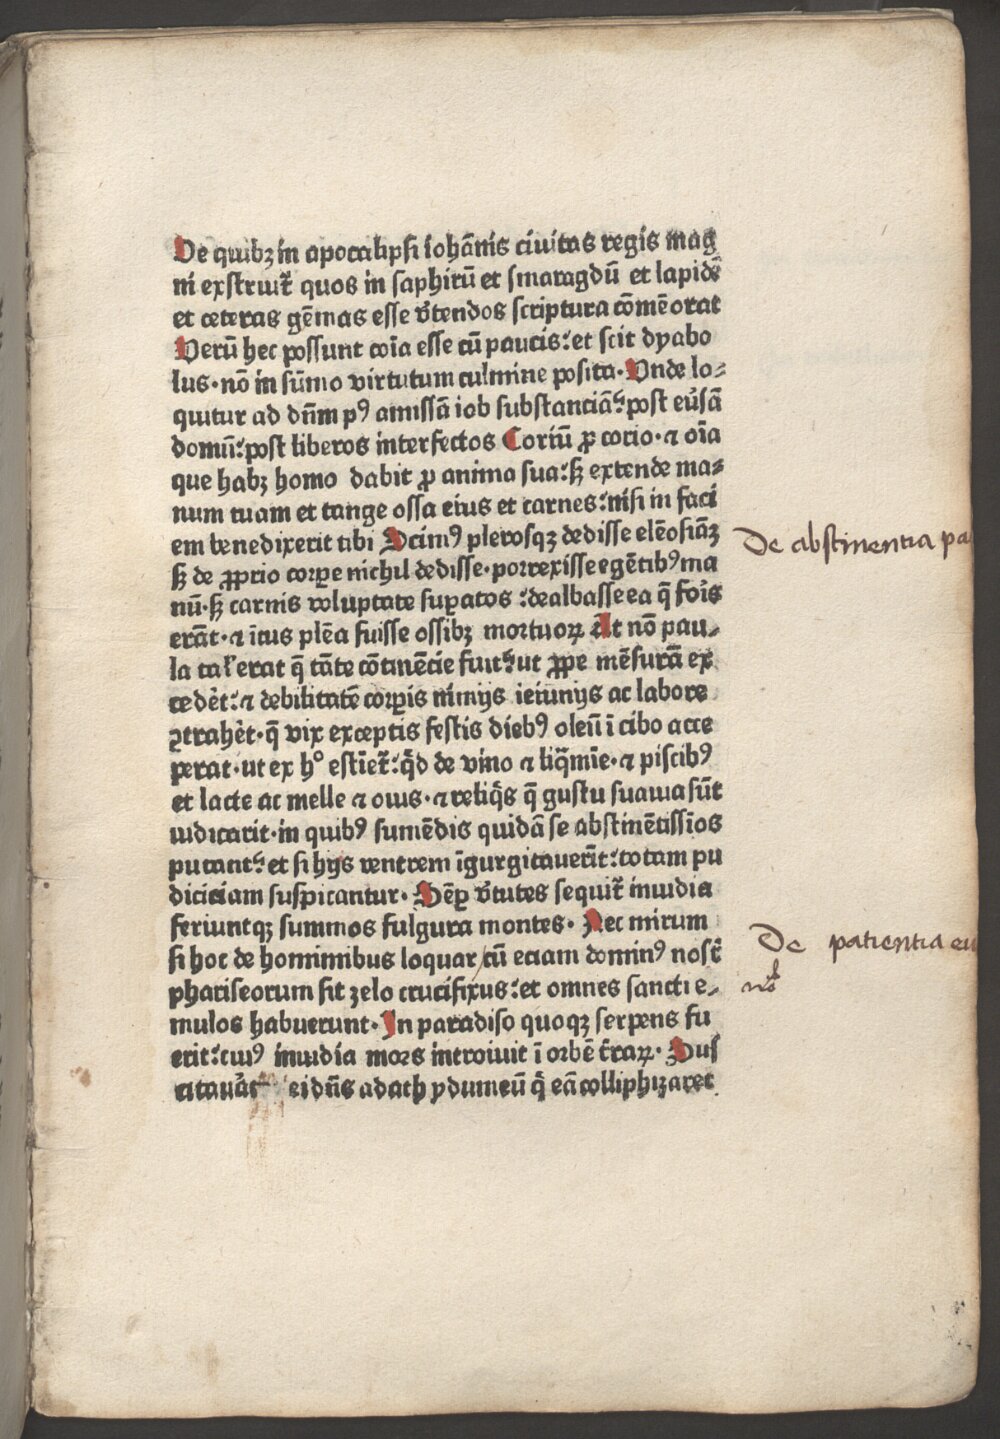 De quibꝫ in apocalipsi iohãnis ciuitas regis mag
ni exstruit᷑ quos in saphirũ et smaragdũ et lapidẽ
et ceteras gẽmas esse v̓tendos scriptura cõmẽorat
Verũ hec possunt coĩa esse cũ paucis: et scit dyabo
lus· nõ in sũmo virtutum culmine posita· Vnde lo⸗
quitur ad dñm pꝰ amissã iob substanciã: post eu̓sã
domũ: post liberos interfectos Coriũ ꝓ corio· ⁊ oĩa
que habꝫ homo dabit ꝓ anima sua: sꝫ extende ma⸗
num tuam et tange ossa eius et carnes: nisi in faci
em benedixerit tibi Scimꝰ plerosqꝫ dedisse elẽosiãꝫ
sꝫ de ꝓprio corꝑe nichil dedisse· porrexisse egẽtibꝰ ma
nũ· sꝫ carnis voluptate suꝑatos: dealbasse ea q̃ fois̓
erãt· ⁊ ĩtus plẽa fuisse ossibꝫ mortuoꝝ At nõ pau⸗
la tal̓ erat q̃ tãte cõtinẽcie fuit: ut ꝓpe mẽsurã ex
cedẽt: ⁊ debilitatẽ corꝑis nimijs ieiunijs ac labore
ꝯtrahẽt· q̃ vix exceptis festis diebꝰ oleũ ĩ cibo acce
perat· ut ex hͦ estĩet᷑: qͥd de vino ⁊ liq̃mĩe· ⁊ piscibꝰ
et lacte ac melle ⁊ ouis· ⁊ reliqͥs q̃ gustu suauia sũt
iudicarit· in quibꝰ sumẽdis quidã se abstinẽtissĩos
putant: et si hijs ventrem ĩgurgitauerĩt: totam pu
diciciam suspicantur· Sẽꝑ v̓tutes sequit᷑ inuidia
feriuntqꝫ summos fulgura montes· Nec mirum
si hoc de hominibus loquar/ cũ eciam dominꝰ nost᷑
phariseorum sit zelo crucifixus: et omnes sancti e⸗
mulos habuerunt· In paradiso quoqꝫ serpens fu
erit: cuiꝰ inuidia mors introiuit ĩ orbẽ t̓raꝝ· Sus
citauãt ei dñs adath ydumeũ qͥ eã colliphizaret
De abstinentia pa
De patientia eu